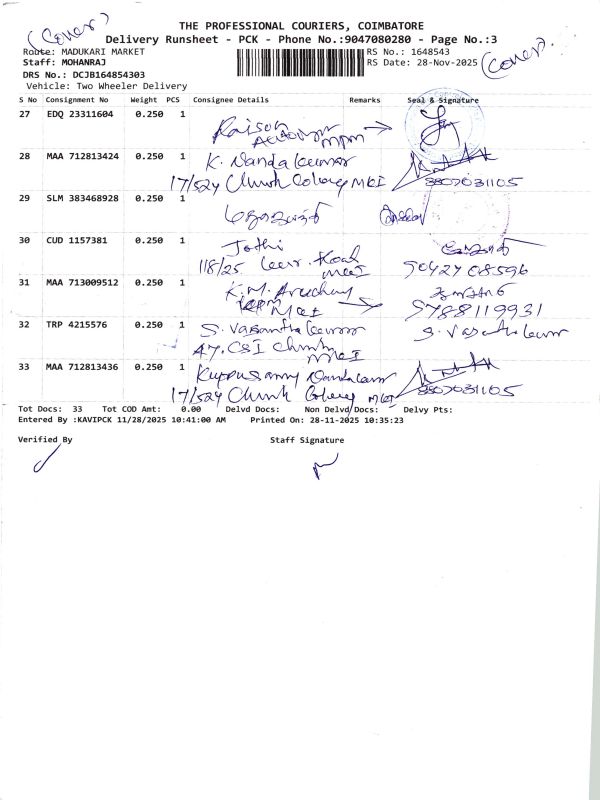 (Cover)
THE PROFESSIONAL COURIERS, COIMBATORE
Delivery Runsheet - PCK - Phone No.:9047080280 - Page No.:3
Route: MADUKARI MARKET
RS No.: 1648543
Staff: MOHANRAJ
RS Date: 28-Nov-2025
(Cover)
DRS No.: DCJB164854303
Vehicle: Two Wheeler Delivery
S No Consignment No Weight PCS Consignee Details Remarks Seal & Signature
27 EDQ 23311604 0.250 1
28 MAA 712813424 0.250 1 K. Nanda kumar
17/524 Church Colony MKI 8807031105
29 SLM 383468928 0.250 1
30 CUD 1157381 0.250 1 Jothi
118/25 Road 9042708596
31 MAA 713009512 0.250 1 K.M.
9788119931
32 TRP 4215576 0.250 1 S. Vasantha kumar S. Vasantha kumar
47, CSI Church
33 MAA 712813436 0.250 1 Kuppusamy Nandakumar
17/524 Church Colony MKI 8807031105
Tot Docs: 33 Tot COD Amt: 0.00 Delvd Docs: Non Delvd Docs: Delvy Pts:
Entered By :KAVIPCK 11/28/2025 10:41:00 AM Printed On: 28-11-2025 10:35:23
Verified By Staff Signature